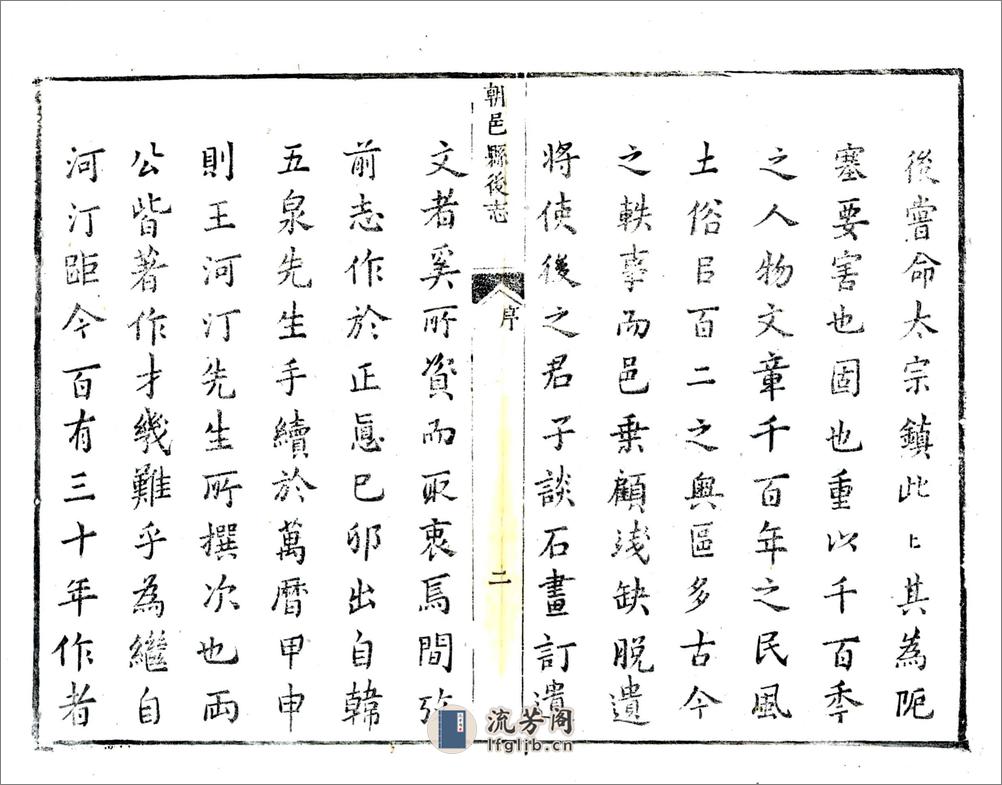 後嘗命太宗鎮此〻其為阨
塞要害也固也重以千百季
之人物文章千百年之民風
土俗㠯百二之輿區多古今
之軼事而邑乗顧残缺脱遺
將使後之君子談石畫訂遺
朝邑縣後志
序
二
文者奚所資而取衷焉間攷
前志作於正德己卯出自韓
五泉先生手續於萬曆甲申
則王河汀先生所撰次也両
公皆著作才幾難乎為繼自
河汀距今百有三十年作者
流芳阁
lfglib.cn